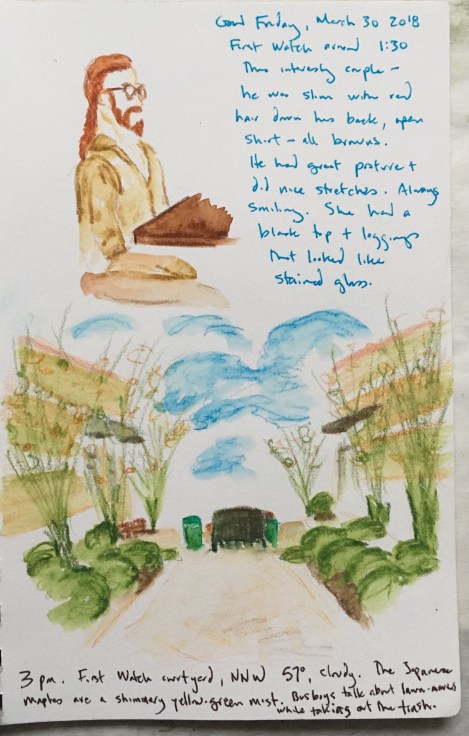 Good Friday, March 30 2018
First Watch around 1:30
This interesting couple -
he was slim with red
hair down his back, open
shirt - all browns.
He had great posture +
did nice stretches. Always
smiling. She had a
black top + leggings
that looked like
stained glass.
3 pm. First Watch courtyard, NNW 57°, cloudy. The Japanese
maples are a shimmery yellow-green mist. Busboys talk about lawn-mowers
while taking out the trash.